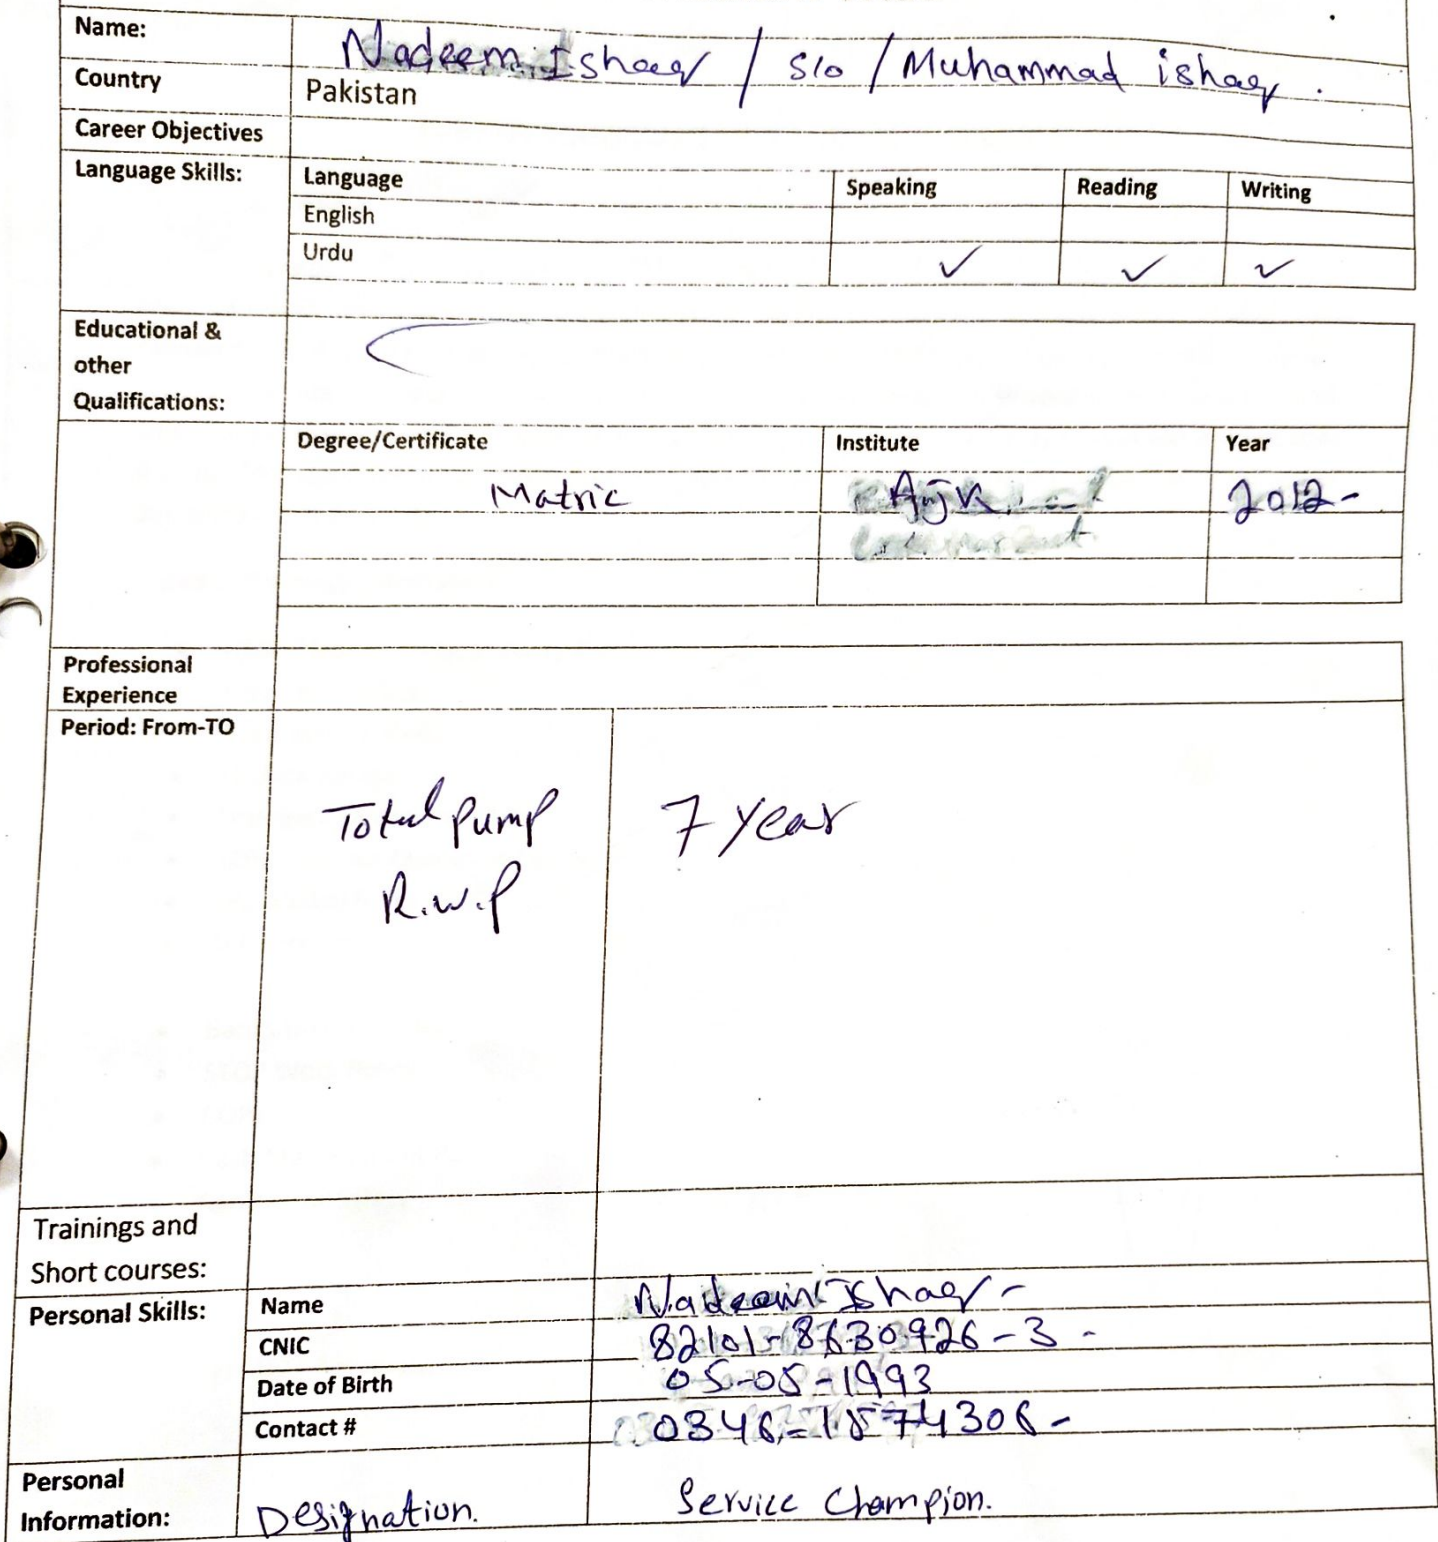 Name: Nadeem Ishaq / S/o / Muhammad ishaq .
Country Pakistan
Career Objectives
Language Skills: Language Speaking Reading Writing
English
Urdu ✓ ✓ ✓
Educational &
other
Qualifications:
Degree/Certificate Institute Year
Matric AJK 2012-
Professional
Experience
Period: From-TO
Total Pump 7 year
R.W.P
Trainings and
Short courses:
Personal Skills: Name Nadeem Ishaq-
CNIC 82101-8630926-3-
Date of Birth 05-05-1993
Contact # 0346-1574306-
Personal
Information: Designation. Service Champion.